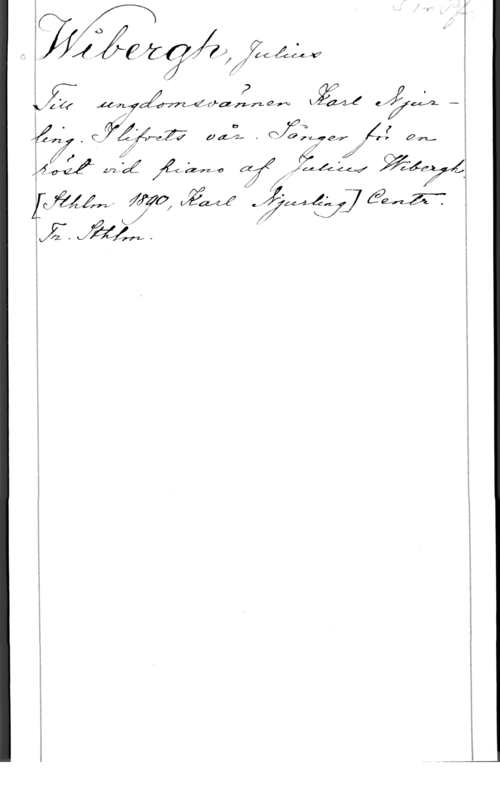 Wibergh, Julius
Till ungdomsvännen Karl Njur-
ling. I lifvets vår. Sånger för en
röst vid piano af Julius Wibergh.
[Sthlm 1890, Karl Njurling] Centr.
Tr. Sthlm.